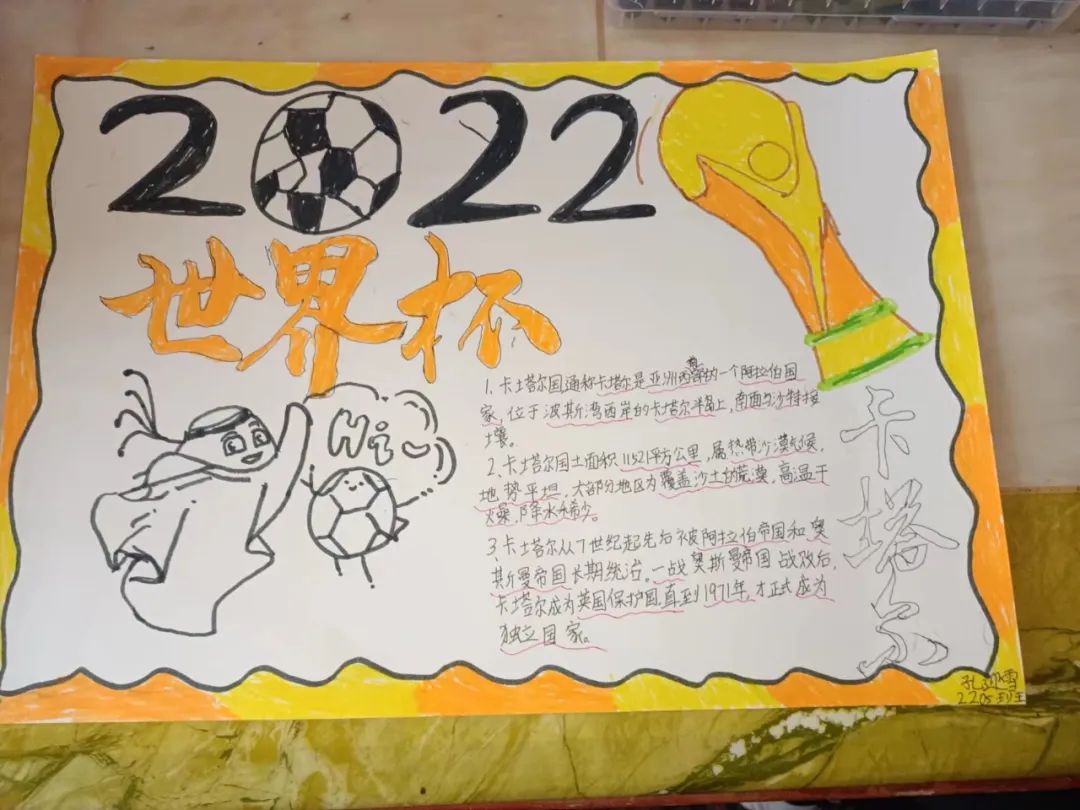 2022
世界杯
Hi~
1、卡塔尔国通称卡塔尔是亚洲西部的一个阿拉伯国
家,位于波斯湾西岸的卡塔尔半岛上,南面与沙特接
壤。
2、卡塔尔国土面积11521平方公里,属热带沙漠气候,
地势平坦,大部分地区为覆盖沙土的荒漠,高温干
燥,降水稀少。
3、卡塔尔从7世纪起先后被阿拉伯帝国和奥
斯曼帝国长期统治。一战奥斯曼帝国战败后,
卡塔尔成为英国保护国直到1971年,才正式成为
独立国家。
卡塔尔
孔 雪
2205班